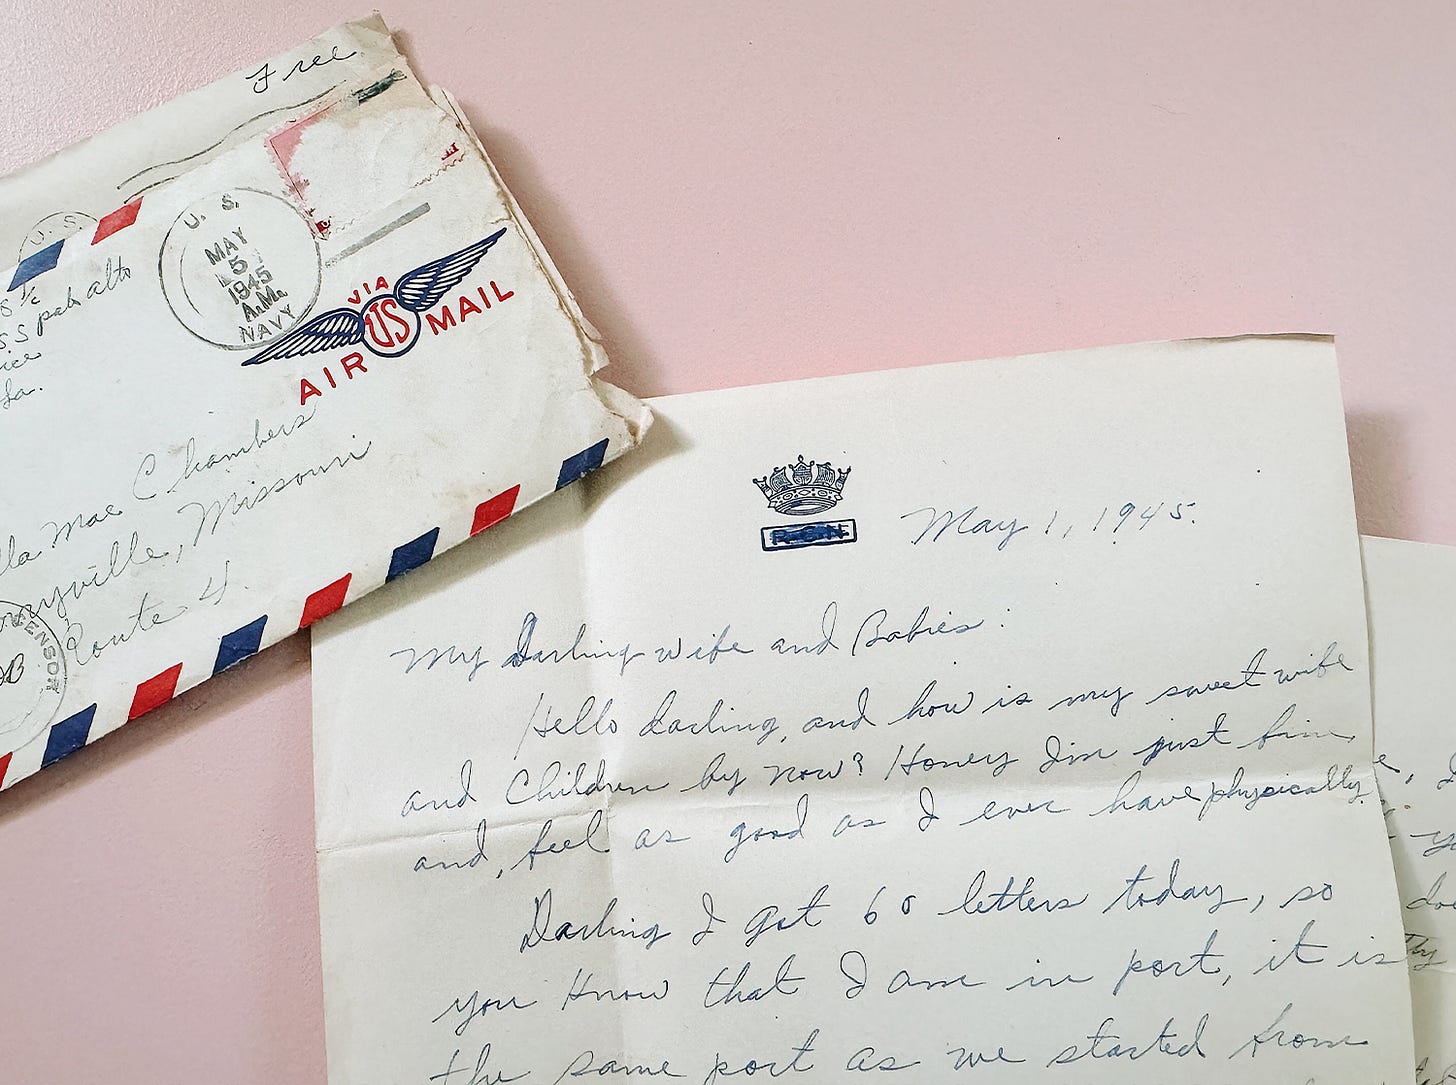 Free
U. S.
MAY
5
1945
A.M.
NAVY
U. S.
VIA
US
AIR MAIL
S palo alto
La.
Mae Chambers
Missouri
Route 4.
CENSOR
R.C.N
May 1, 1945.
My Darling wife and Babies:
Hello darling, and how is my sweet wife
and Children by now? Honey Im just fine
and, feel as good as I ever have physically.
Darling I got 60 letters today, so
you Know that I am in port, it is
the same port as we started from